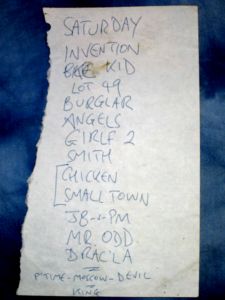 SATURDAY
INVENTION
KID
LOT 49
BURGLAR
ANGELS
GIRLF 2
SMITH
CHICKEN
SMALL TOWN
JB PM
MR. ODD
DRAC'LA
P'TIME - MOSCOW - DEVIL
KING